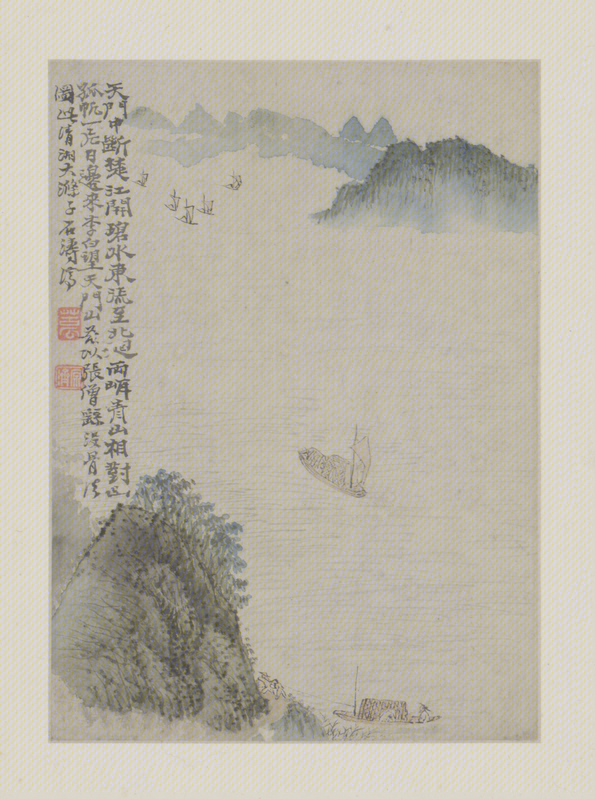 天門中斷楚江開碧水東流至北迴兩岸青山相對出
孤帆一片日邊來李白望天門山茲以張僧繇沒骨法
圖此清湘大滌子石濤濟